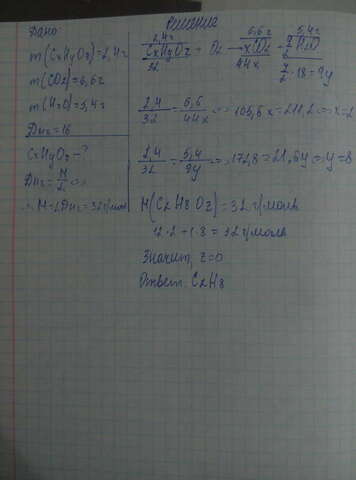 Дано
m(CxHyOz)=2,4г
m(CO2)=6,6г
m(H2O)=5,4г
DH2=16
CxHyOz-?
DH2=M/2 =>
M=2DH2=32г/моль
Решение
2,4г 6,6г 5,4г
CxHyOz + O2 → xCO2 + y/2 H2O
32 44x y/2·18=9y
2,4/32 = 6,6/44x => 105,6x=211,2 => x=2
2,4/32 = 5,4/9y => 172,8=21,6y => y=8
M(C2H8Oz)=32 г/моль
12·2+1·8=32г/моль
Значит, z=0
Ответ: C2H8